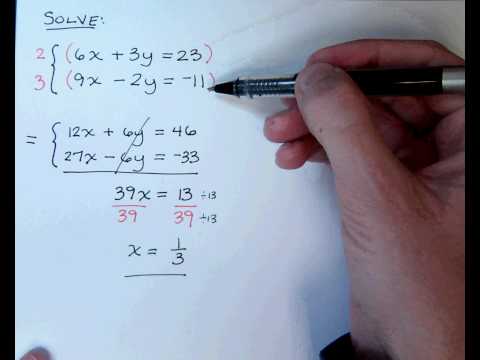 SOLVE:
2 { (6x + 3y = 23)
3 { (9x - 2y = -11)
= { 12x + 6y = 46
27x - 6y = -33
39x = 13 ÷13
39 39 ÷13
x = 1/3